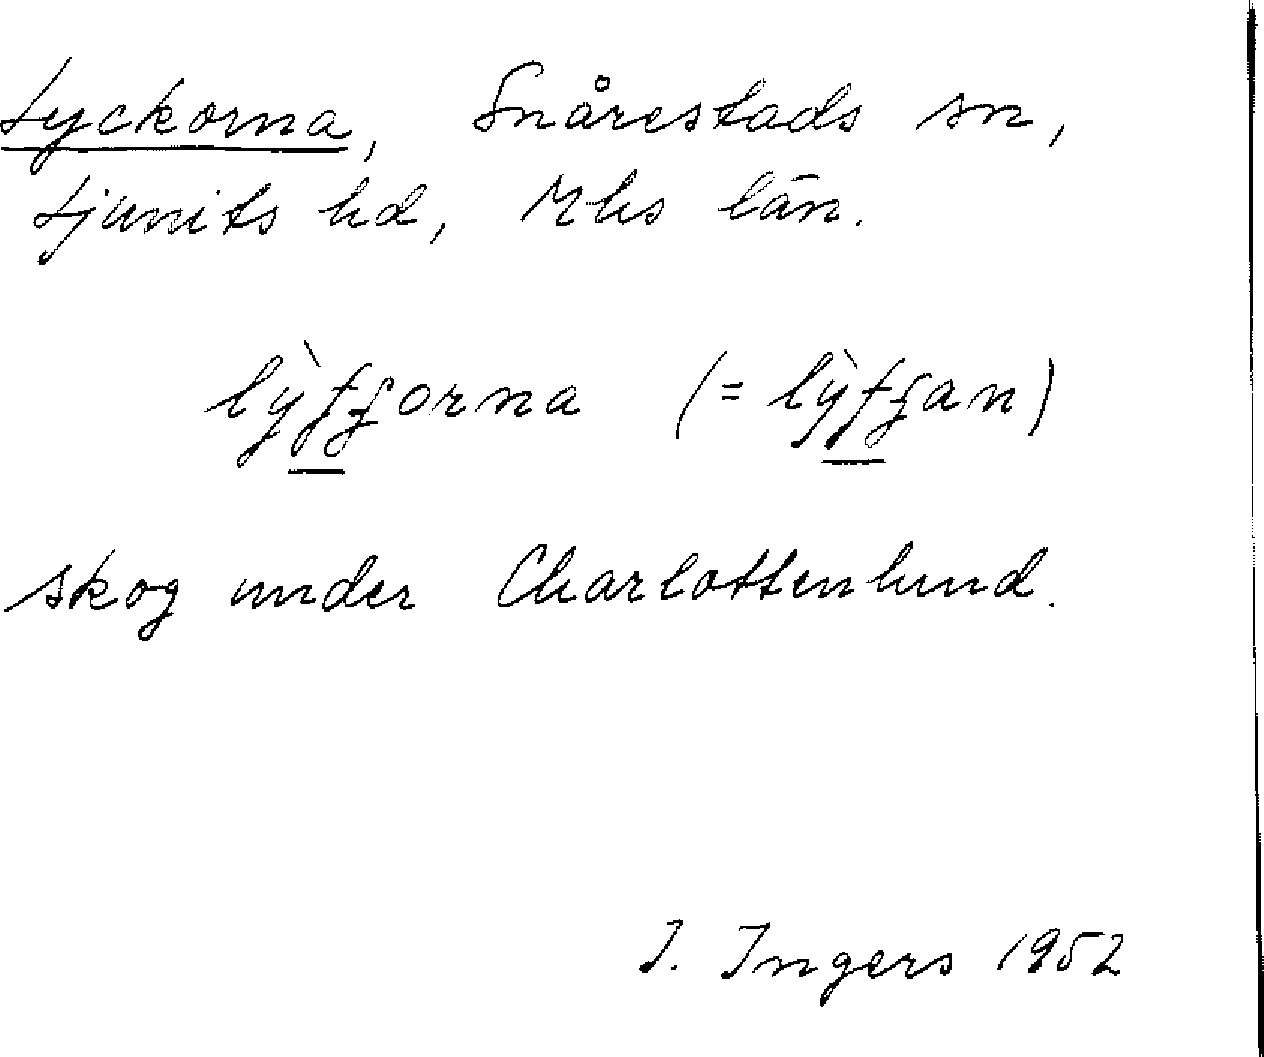 Lyckorna, Snårestads sn,
Ljunits hd, Mhs län.
lỳʄʄorna (= lỳʄʄan)
skog under Charlottenlund.
I. Ingers 1952